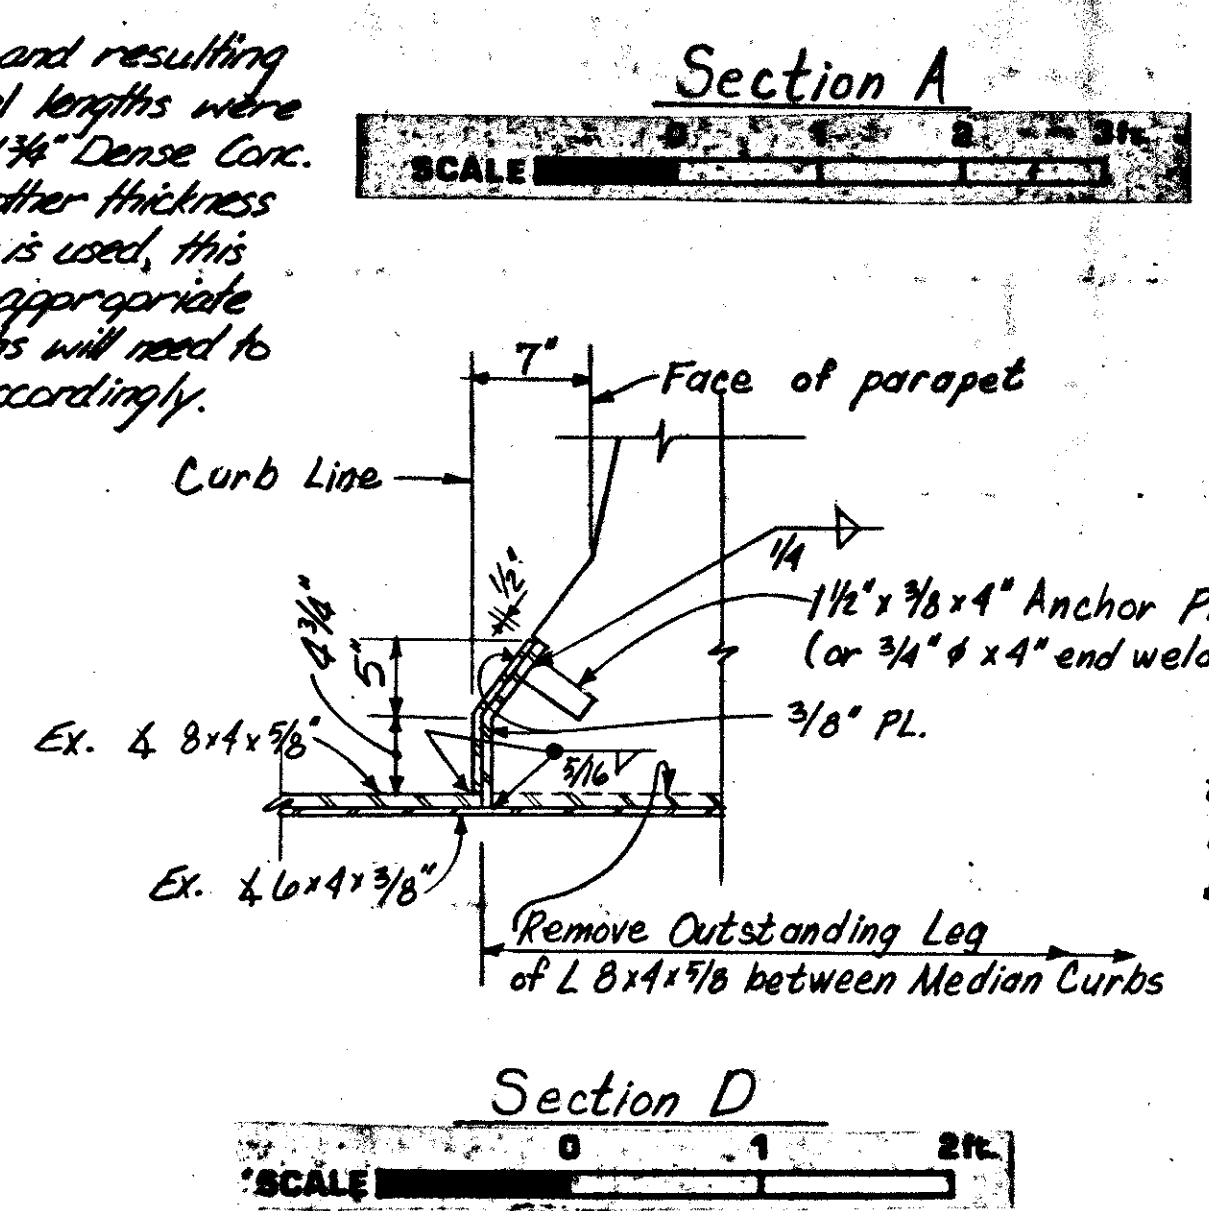 and resulting
lengths were
1 3/4" Dense Conc.
other thickness
is used, this
appropriate
will need to
accordingly.
Section A
0 1 2 3 ft.
SCALE
7"
Face of parapet
Curb Line
1/2"
1/4
4 3/4"
5"
1 1/2" x 3/8 x 4" Anchor
(or 3/4" ϕ x 4" end
3/8" PL.
Ex. ∡ 8x4x5/8"
5/16
Ex. ∡ 6x4x3/8"
Remove Outstanding Leg
of L 8x4x5/8 between Median Curbs
Section D
0 1 2 ft.
SCALE